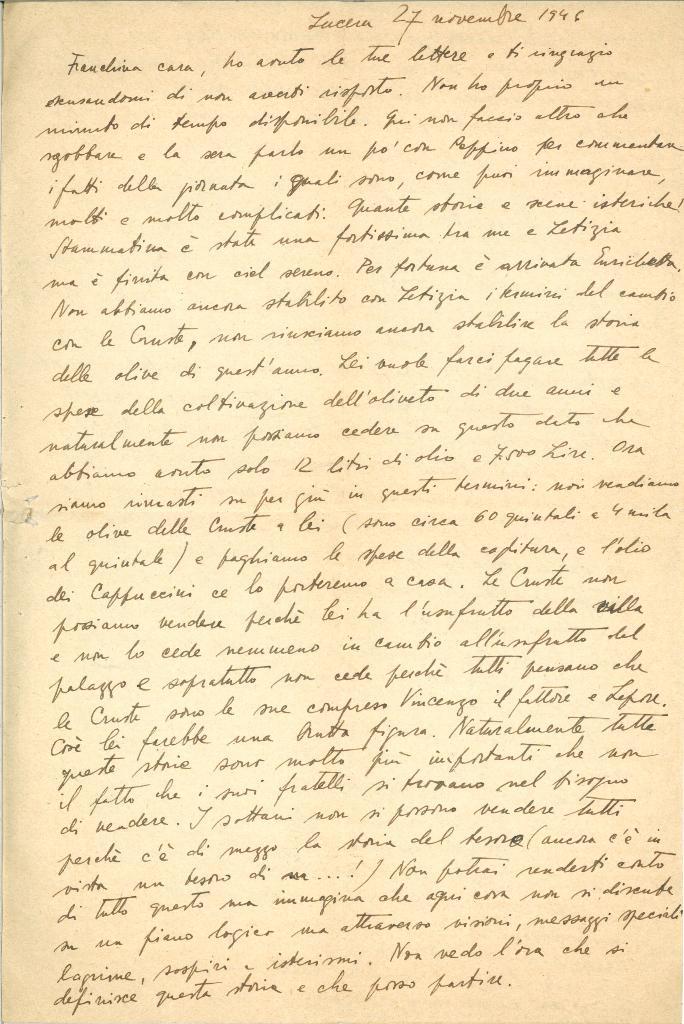 Lucera 27 novembre 1946
Franchina cara, ho avuto le tue lettere e ti ringrazio
scusandomi di non averti risposto. Non ho proprio un
minuto di tempo disponibile. Qui non faccio altro che
sgobbare e la sera parlo un po' con Peppino per commentare
i fatti della giornata i quali sono, come puoi immaginare,
molti e molto complicati. Quante storie e scene isteriche!
Stammatina è stata una fortissima tra me e Letizia
ma è finita con ciel sereno. Per fortuna è arrivata Enrichetta.
Non abbiamo ancora stabilito con Letizia i termini del cambio
con le Cruste, non riusciamo ancora stabilire la storia
delle olive di quest'anno. Lei vuole farci pagare tutte le
spese della coltivazione dell'oliveto di due anni e
naturalmente non possiamo cedere su questo dato che
abbiamo avuto solo 12 litri di olio e 7.500 Lire. Ora
siamo rimasti su per giù in questi termini: noi vendiamo
le olive delle Cruste a lei (sono circa 60 quintali a 4 mila
al quintale) e paghiamo le spese della coglitura, e l'olio
dei Cappuccini ce lo porteremo a casa. Le Cruste non
possiamo vendere perchè lei ha l'usufrutto della villa
e non lo cede nemmeno in cambio all'usufrutto del
palazzo e sopratutto non cede perchè tutti pensano che
le Cruste sono le sue compreso Vincenzo il fattore e Lepore.
Così lei farebbe una brutta figura. Naturalmente tutte
queste storie sono molto più importanti che non
il fatto che i suoi fratelli si trovano nel bisogno
di vendere. I sottani non si possono vendere tutti
perchè c'è di mezzo la storia del tesoro (ancora c'è in
vista un tesoro di ...!) Non potrai renderti conto
di tutto questo ma immagina che ogni cosa non si discute
su un piano logico ma attraverso visioni, messaggi speciali
lagrime, sospiri e isterismi. Non vedo l'ora che si
definisce questa storia e che posso partire.